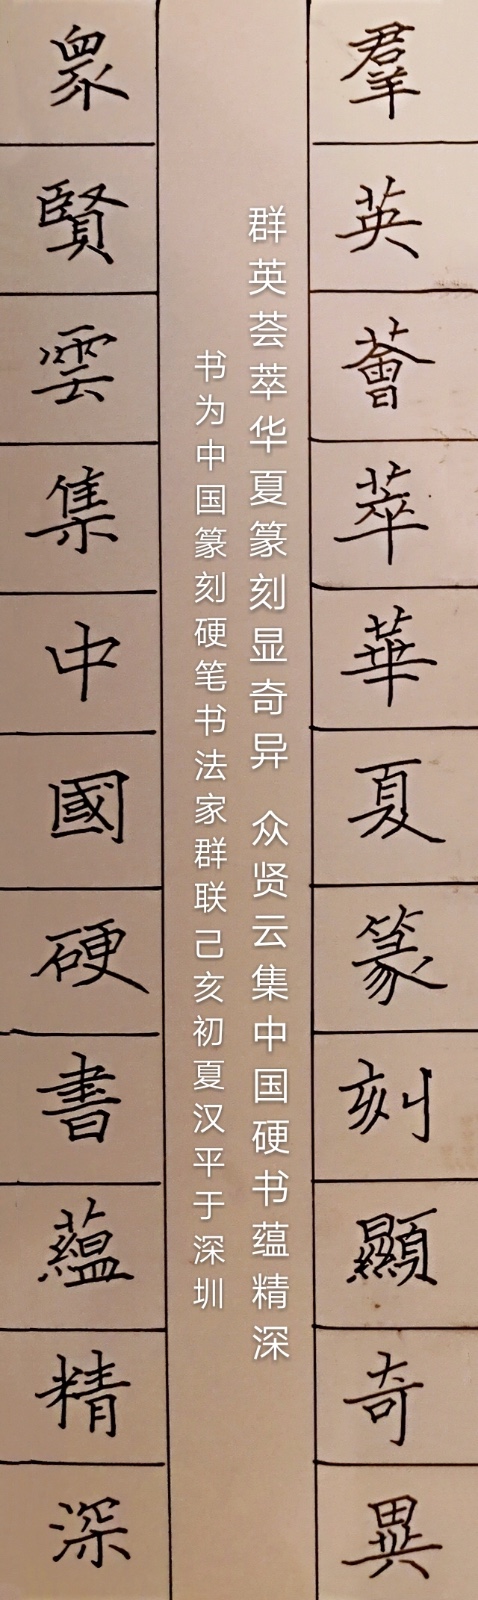 羣英薈萃華夏篆刻顯奇異
群英荟萃华夏篆刻显奇异 众贤云集中国硬书蕴精深
书为中国篆刻硬笔书法家群联己亥初夏汉平于深圳
眾賢雲集中國硬書蘊精深